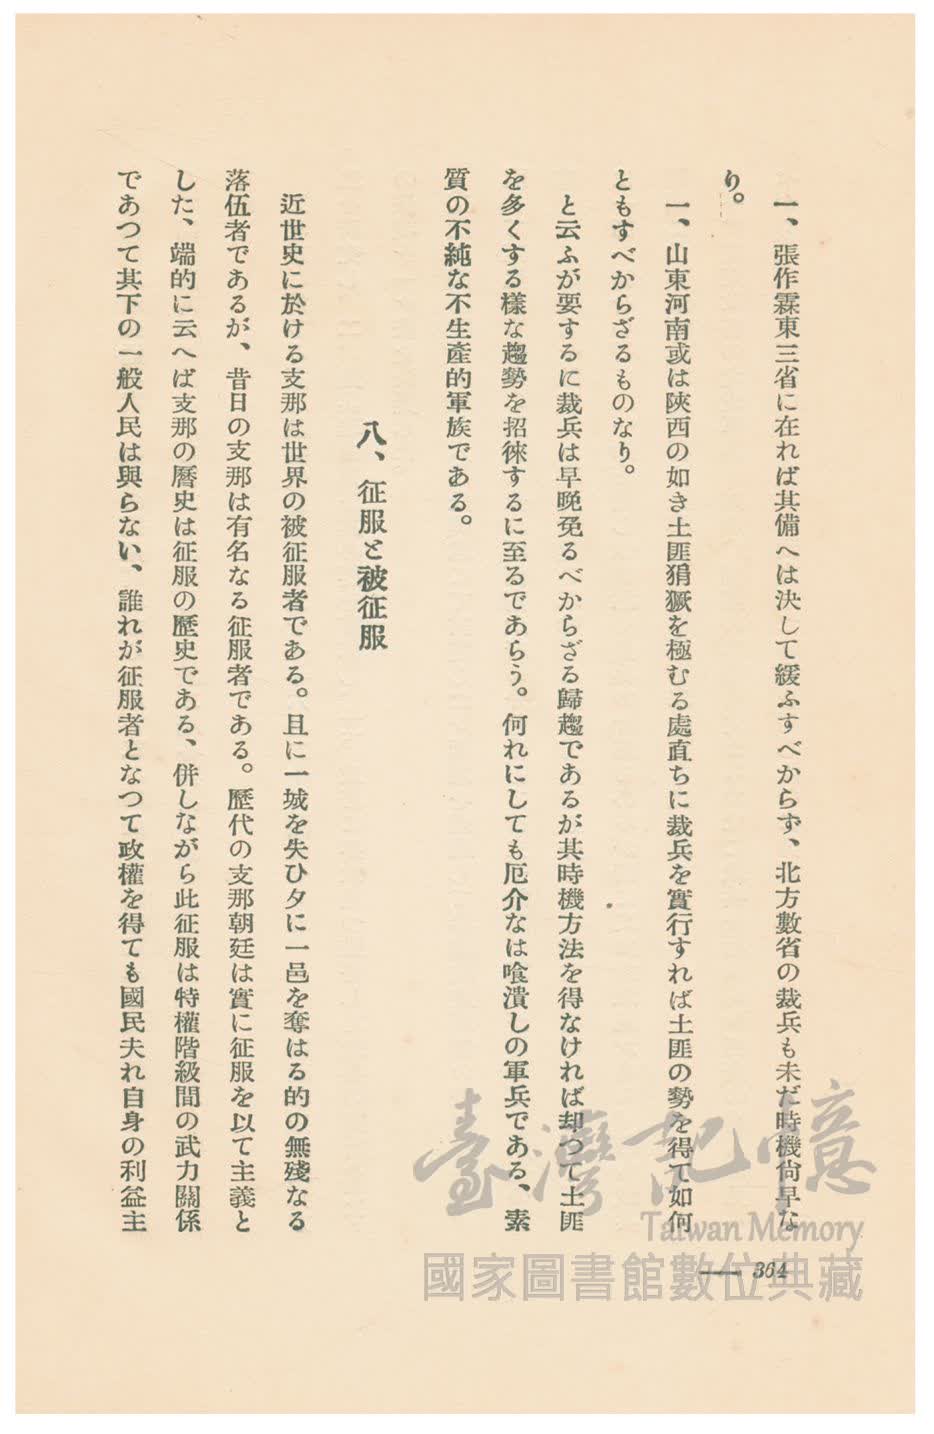 一、張作霖東三省に在れば其備へは決して緩ふすべからず、北方數省の裁兵も未だ時機尙早な
り。
一、山東河南或は陝西の如き土匪猖獗を極むる處直ちに裁兵を實行すれば土匪の勢を得て如何
ともすべからざるものなり。
と云ふが要するに裁兵は早晩免るべからざる歸趨であるが其時機方法を得なければ却つて土匪
を多くする樣な趨勢を招徠するに至るであらう。何れにしても厄介なは喰潰しの軍兵である、素
質の不純な不生產的軍族である。
八、征服と被征服
近世史に於ける支那は世界の被征服者である。且に一城を失ひ夕に一邑を奪はる的の無殘なる
落伍者であるが、昔日の支那は有名なる征服者である。歷代の支那朝廷は實に征服を以て主義と
した、端的に云へば支那の曆史は征服の歷史である、併しながら此征服は特權階級間の武力關係
であつて其下の一般人民は與らない、誰れが征服者となつて政權を得ても國民夫れ自身の利益主
364
臺灣記憶
Taiwan Memory
國家圖書館數位典藏